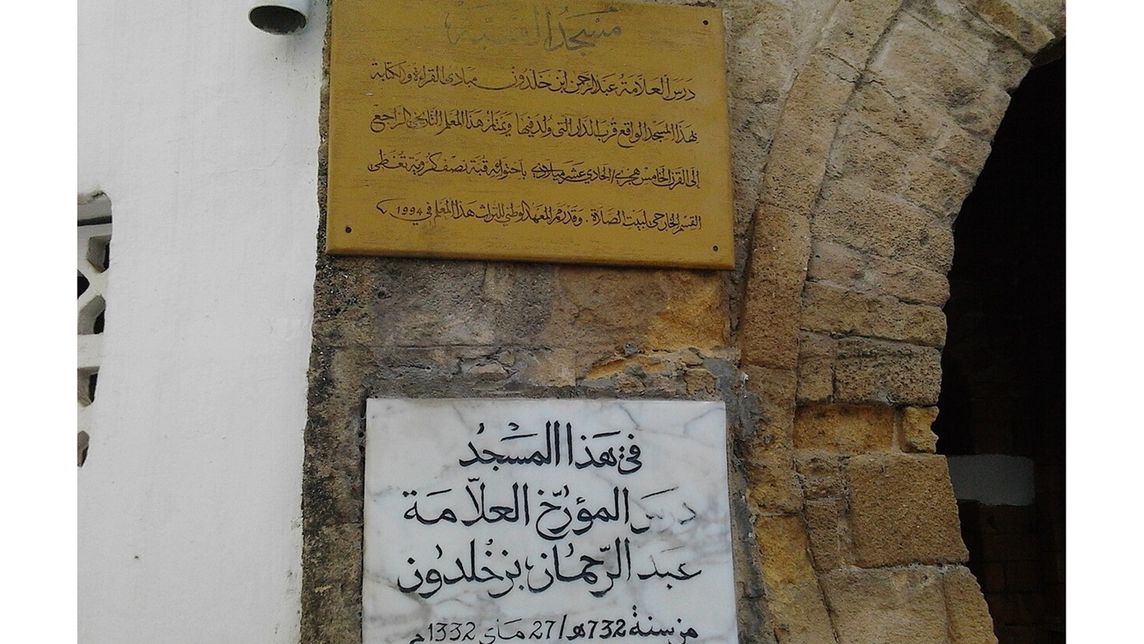 مسجد القبة
درس العلامة عبد الرحمن ابن خلدون مبادئ القراءة والكتابة
بهذا المسجد الواقع قرب الدار التي ولد فيها ويمتاز هذا المعلم التاريخي الراجع
إلى القرن الخامس هجري/الحادي عشر ميلادي باحتوائه قبة نصف كروية تغطي
القسم الخارجي لبيت الصلاة. وقد رمم المعهد الوطني للتراث هذا المعلم في 1994
في هذا المسجد
درس المؤرّخ العلاّمة
عبد الرّحمان بن خُلدُون
من سنة 732هـ/27 ماي 1332م